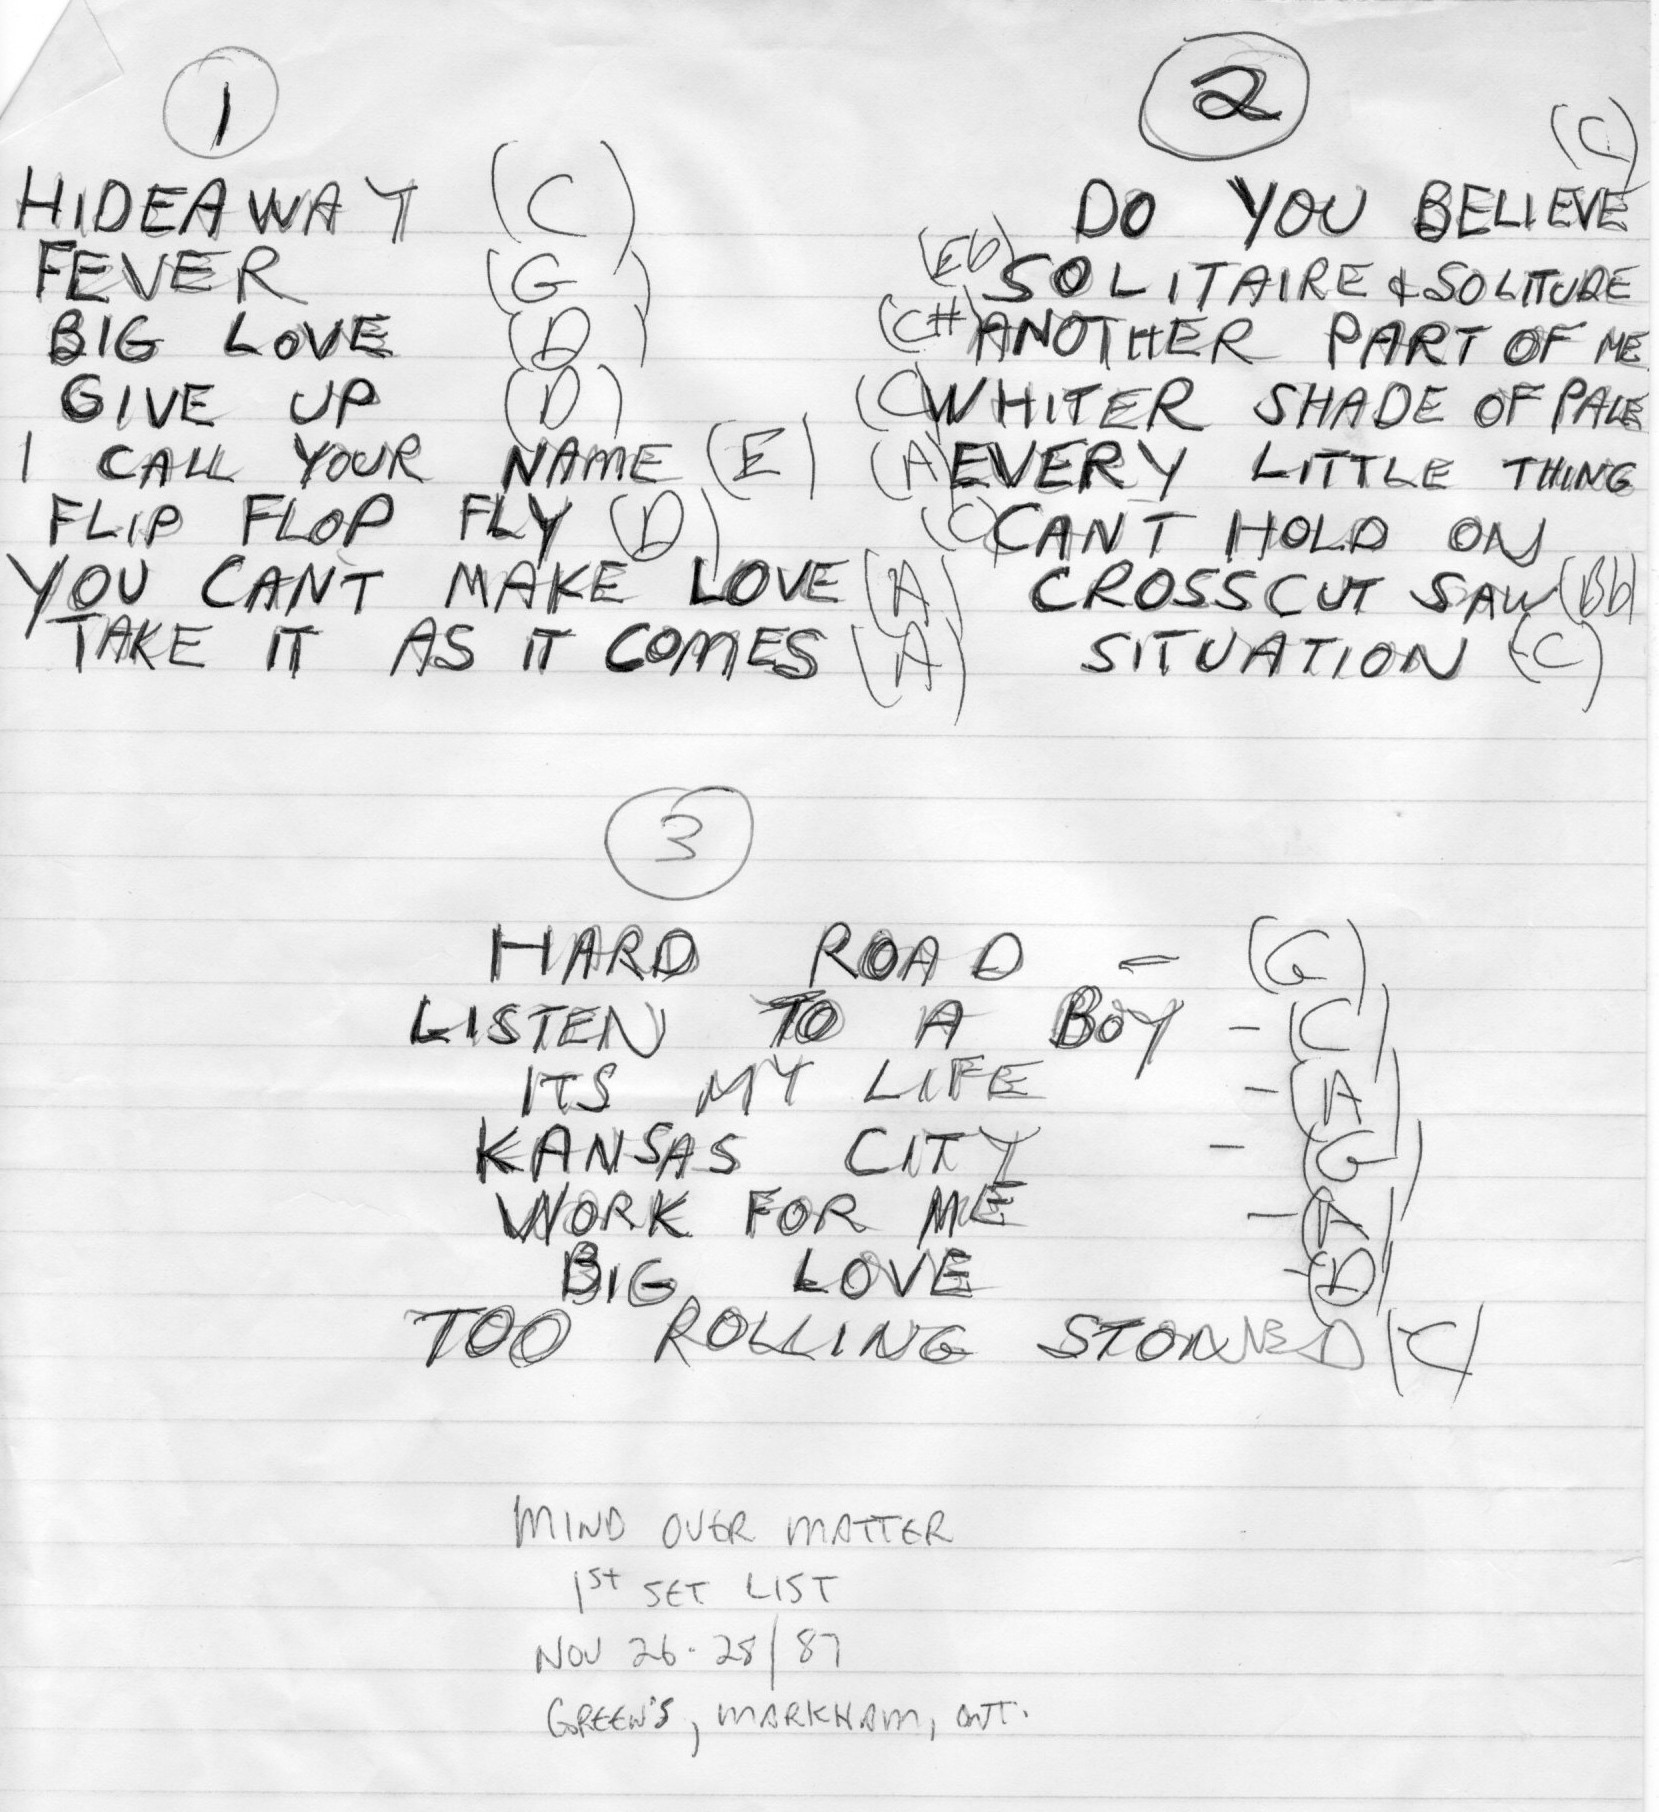 1
HIDEAWAY (C)
FEVER (G)
BIG LOVE (D)
GIVE UP (D)
I CALL YOUR NAME (E)
FLIP FLOP FLY (D)
YOU CANT MAKE LOVE (A)
TAKE IT AS IT COMES (A)
2
(C)
DO YOU BELIEVE
(Eb) SOLITAIRE & SOLITUDE
(C#) ANOTHER PART OF ME
(C) WHITER SHADE OF PALE
(A) EVERY LITTLE THING
(C) CANT HOLD ON
CROSSCUT SAW (Bb)
SITUATION (C)
3
HARD ROAD - (G)
LISTEN TO A BOY - (C)
ITS MY LIFE - (A)
KANSAS CITY - (G)
WORK FOR ME - (A)
BIG LOVE - (D)
TOO ROLLING STONED (C)
MIND OVER MATTER
1st SET LIST
NOV 26-28/87
GREEN'S, MARKHAM, ONT.